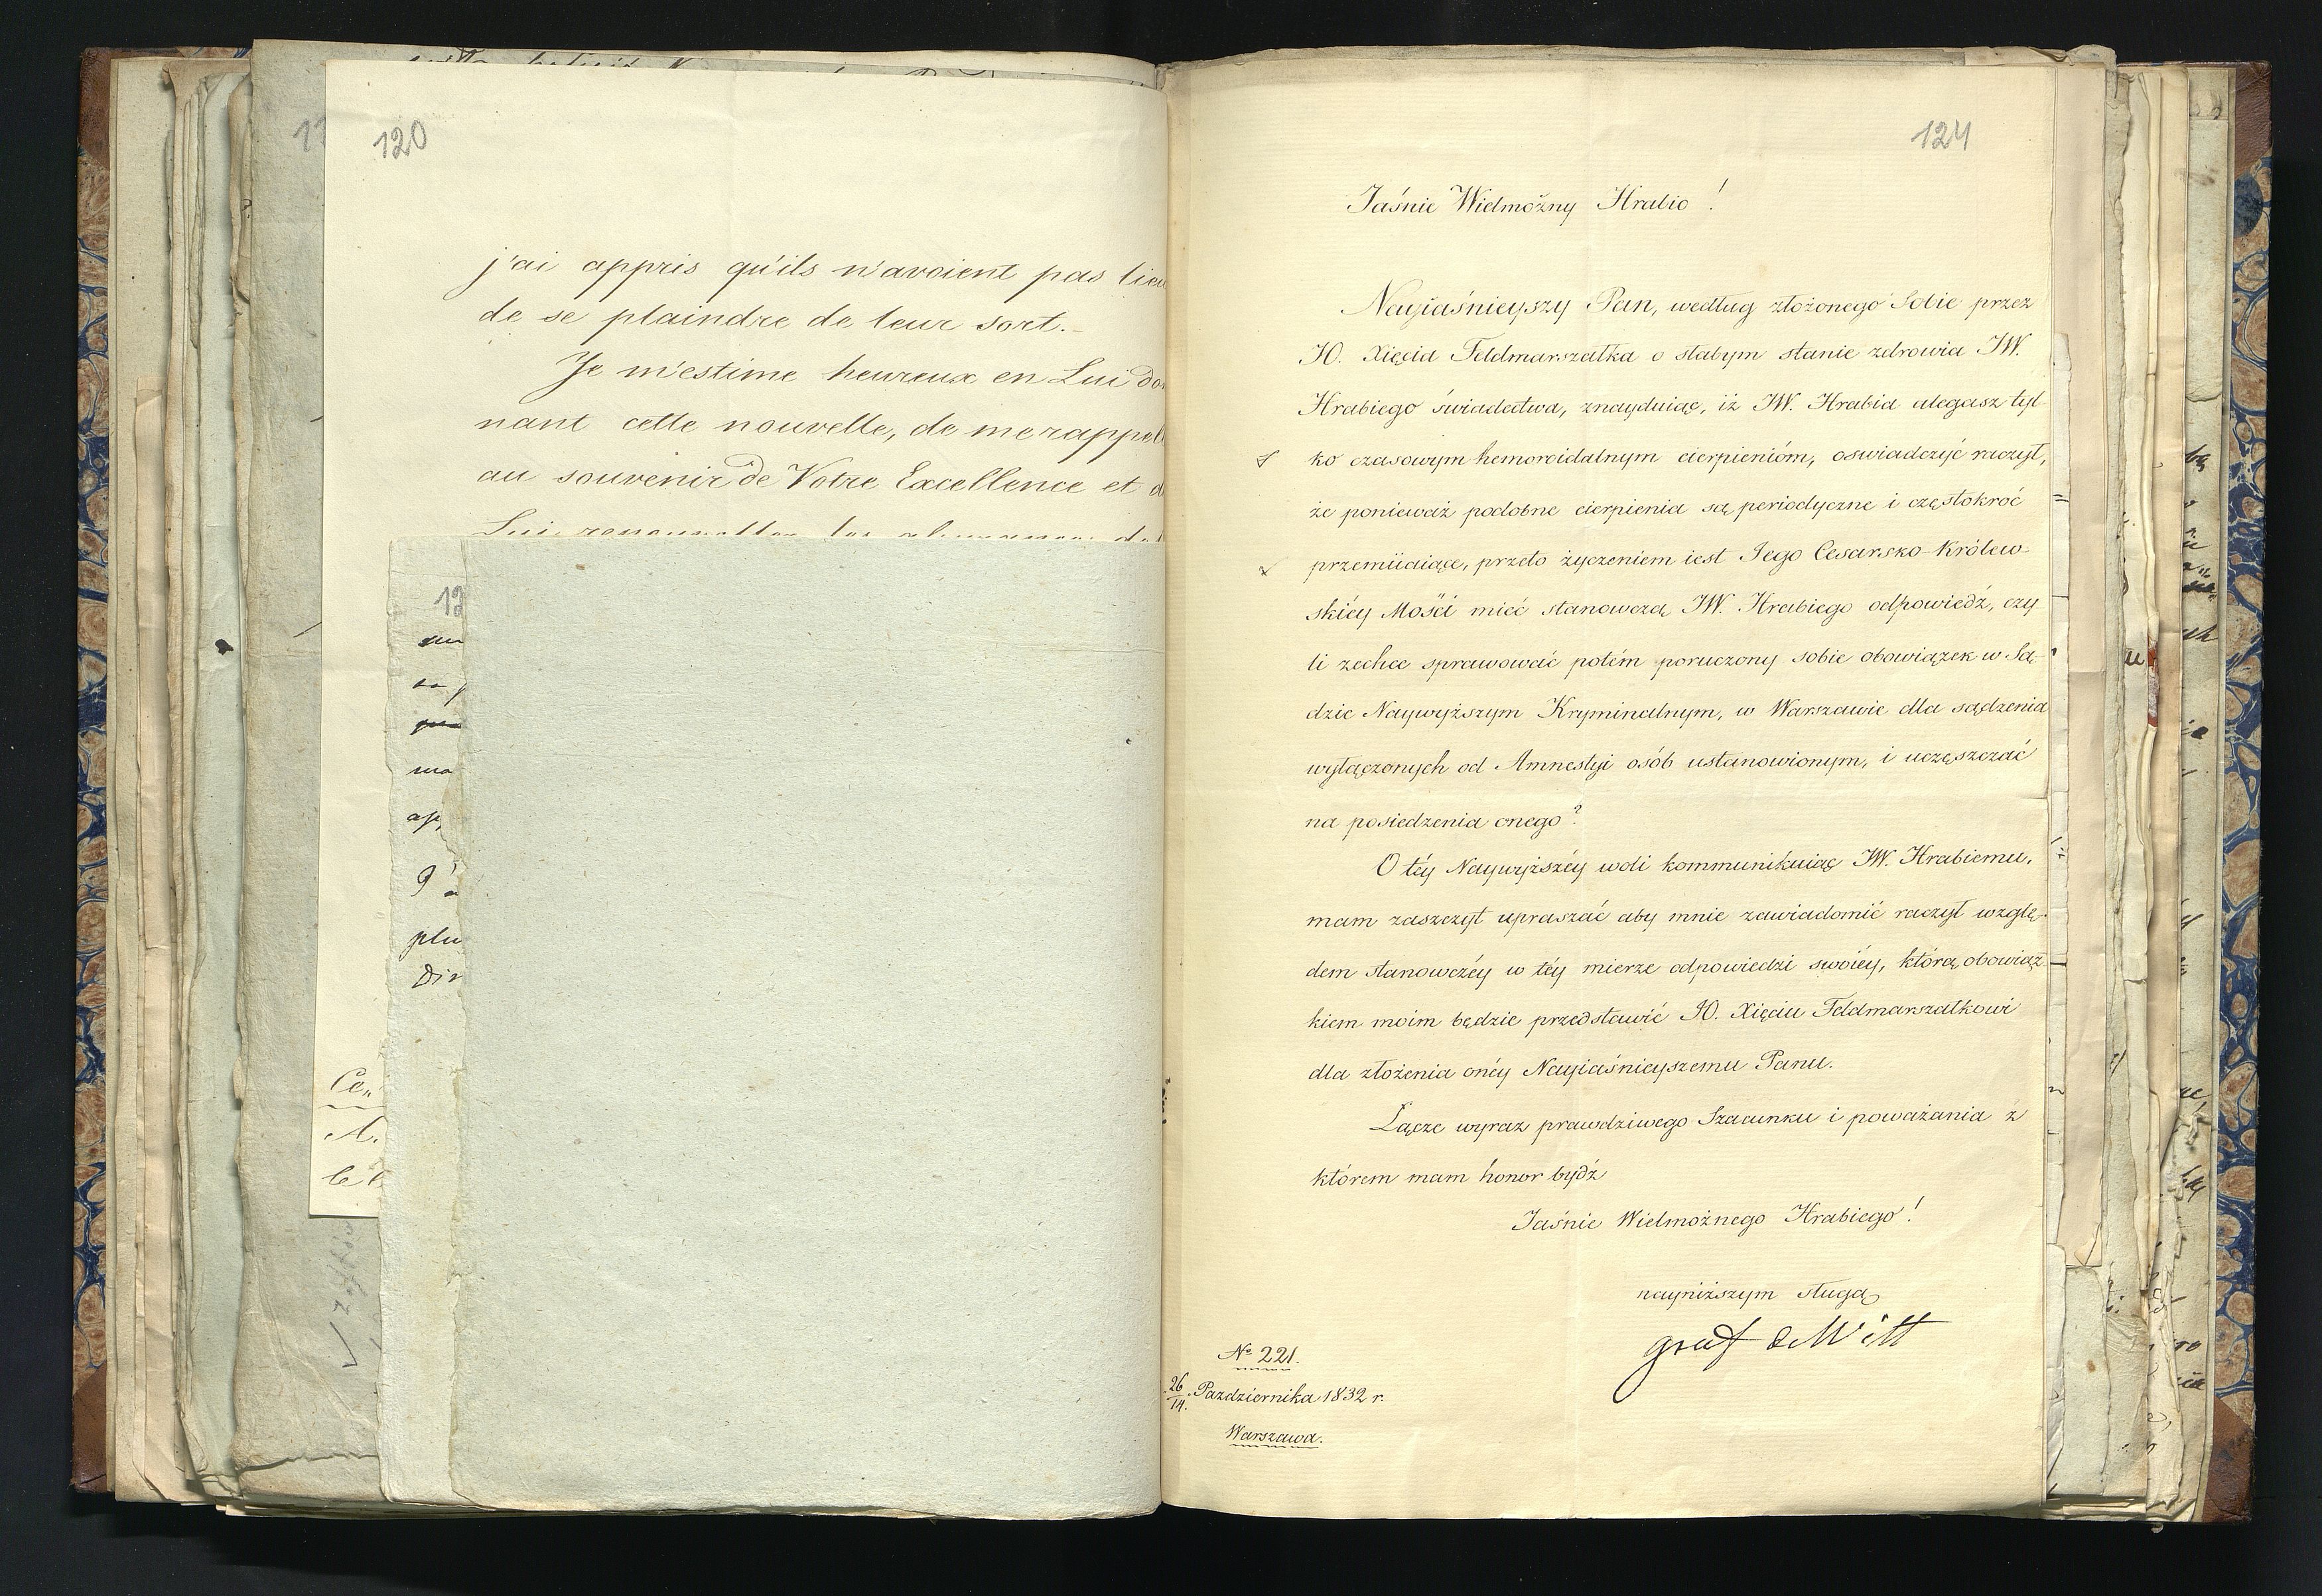 120
j'ai appris qu'ils n'avoient pas lieu
de se plaindre de leur sort.
Je m'estime heureux en Lui don
nant cette nouvelle, de me rappell
au souvenir de Votre Excellence et d
Lui renouveller les
12
plu
Dir
124
Jaśnie Wielmożny Hrabio!
Nayiaśnieyszy Pan, według złożonego Sobie przez
JO. Xięcia Feldmarszałka o słabym stanie zdrowia JW.
Hrabiego świadectwa, znayduiąc, iż JW. Hrabia alegasz tyl-
ko czasowym hemoroidalnym cierpienióm, oswiadczyć raczył,
że ponieważ podobne cierpienia są periodyczne i częstokroć
przemiiaiące, przeto życzeniem iest Jego Cesarsko-Królew-
skiéy Mości mieć stanowczą JW. Hrabiego odpowiedź, czy-
li zechce sprawować potém poruczony sobie obowiązek w Są-
dzie Naywyższym Kryminalnym, w Warszawie dla sądzenia
wyłączonych od Amnestyi osób ustanowionym, i uczęszczać
na posiedzenia onego?
O téy Naywyższéy woli kommunikuiąc JW. Hrabiemu,
mam zaszczyt upraszać aby mnie zawiadomić raczył wzglę-
dem stanowczéy w téy mierze odpowiedzi swoiéy, którą obowiąz-
kiem moim będzie przedstawić JO. Xięciu Feldmarszałkowi
dla złożenia onéy Nayiaśnieyszemu Panu.
Łączę wyraz prawdziwego Szacunku i poważania z
którem mam honor bydź
Jaśnie Wielmożnego Hrabiego!
nayniższym sługą
graf de Witt
No 221.
26/14. Pazdziernika 1832 r.
Warszawa.